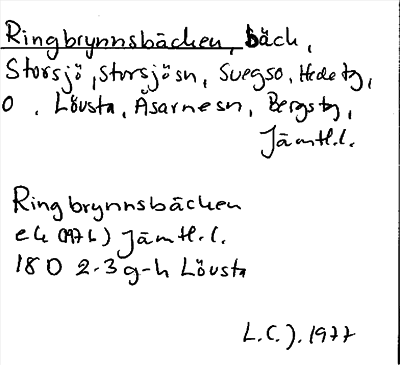 Ringbrynnsbäcken, bäck,
Storsjö, Storsjösn, Svegso, Hede tg,
O, Lövsta, Åsarnesn, Bergstg,
Jämtl.l.
Ringbrynnsbäcken
ek (1976) Jämtl.l.
18 D 2-3 g-h Lövsta
L.C.J. 1977